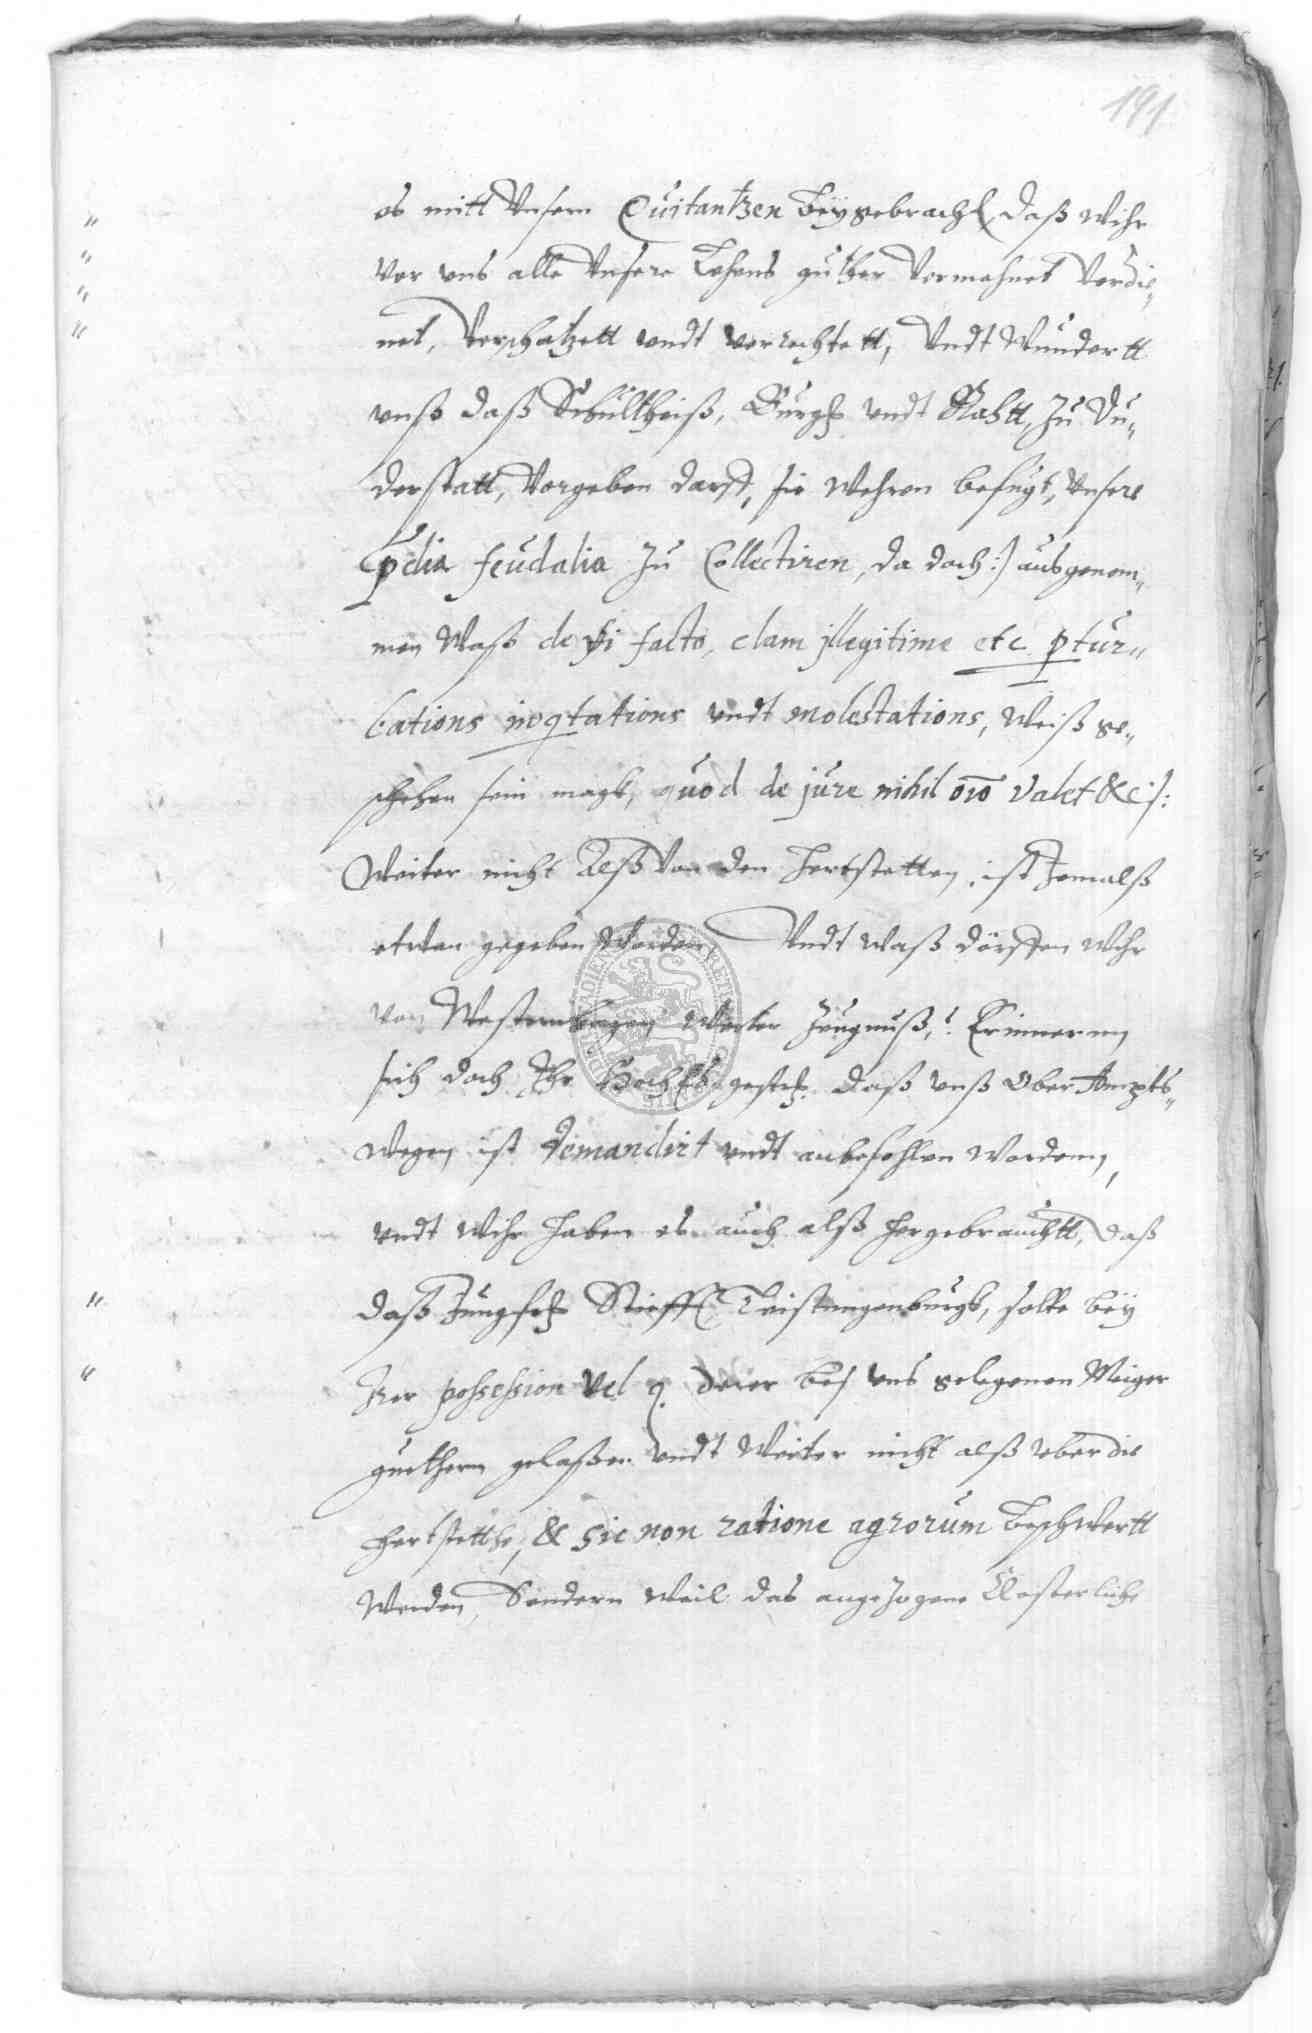 191
es mitt Unsern Quitantzen beygebracht, daß wihr
vor uns alle Unsere Lehens guther Vermehnet Verdie„
net, Verschatzett undt verrechtett, Undt Wundertt
unß daß Schultheiß, Burg. undt Rahtt, zu Du„
derstatt, Vorgeben darff, sie wehren befugt, Unsere
pdia feudalia zu Collectiren, da doch :/ ausgenom„
men Waß de facto, clam jllegitime etc ptur„
bations inqtations undt molestations, weiß ge„
schehen sein magk, quod de jure nihil oio valet &c /:
Weiter nicht Alß von den Hertstetten, ist Jemalß
etwan gegeben worden, Undt waß dörffen wihr
von Westernhagen weiter Zeugnuß,! Erinnernn
sich doch Ihr Hoch gestr. daß unß Ober Ampts„
wegen ist demandirt undt anbefohlen wordenn,
undt wihr haben es auch alß hergebrauchtt, daß
daß Jungfr. Stifft Teistungenburgk, solte bey
Irer possession vel q. derer bey uns gelegenen Meiger
guethern gelaßen undt Weiter nicht alß uber die
Hertstette, & sic non ratione agrorum beschwertt
werden, Sondern weil das angezogene Closterliche